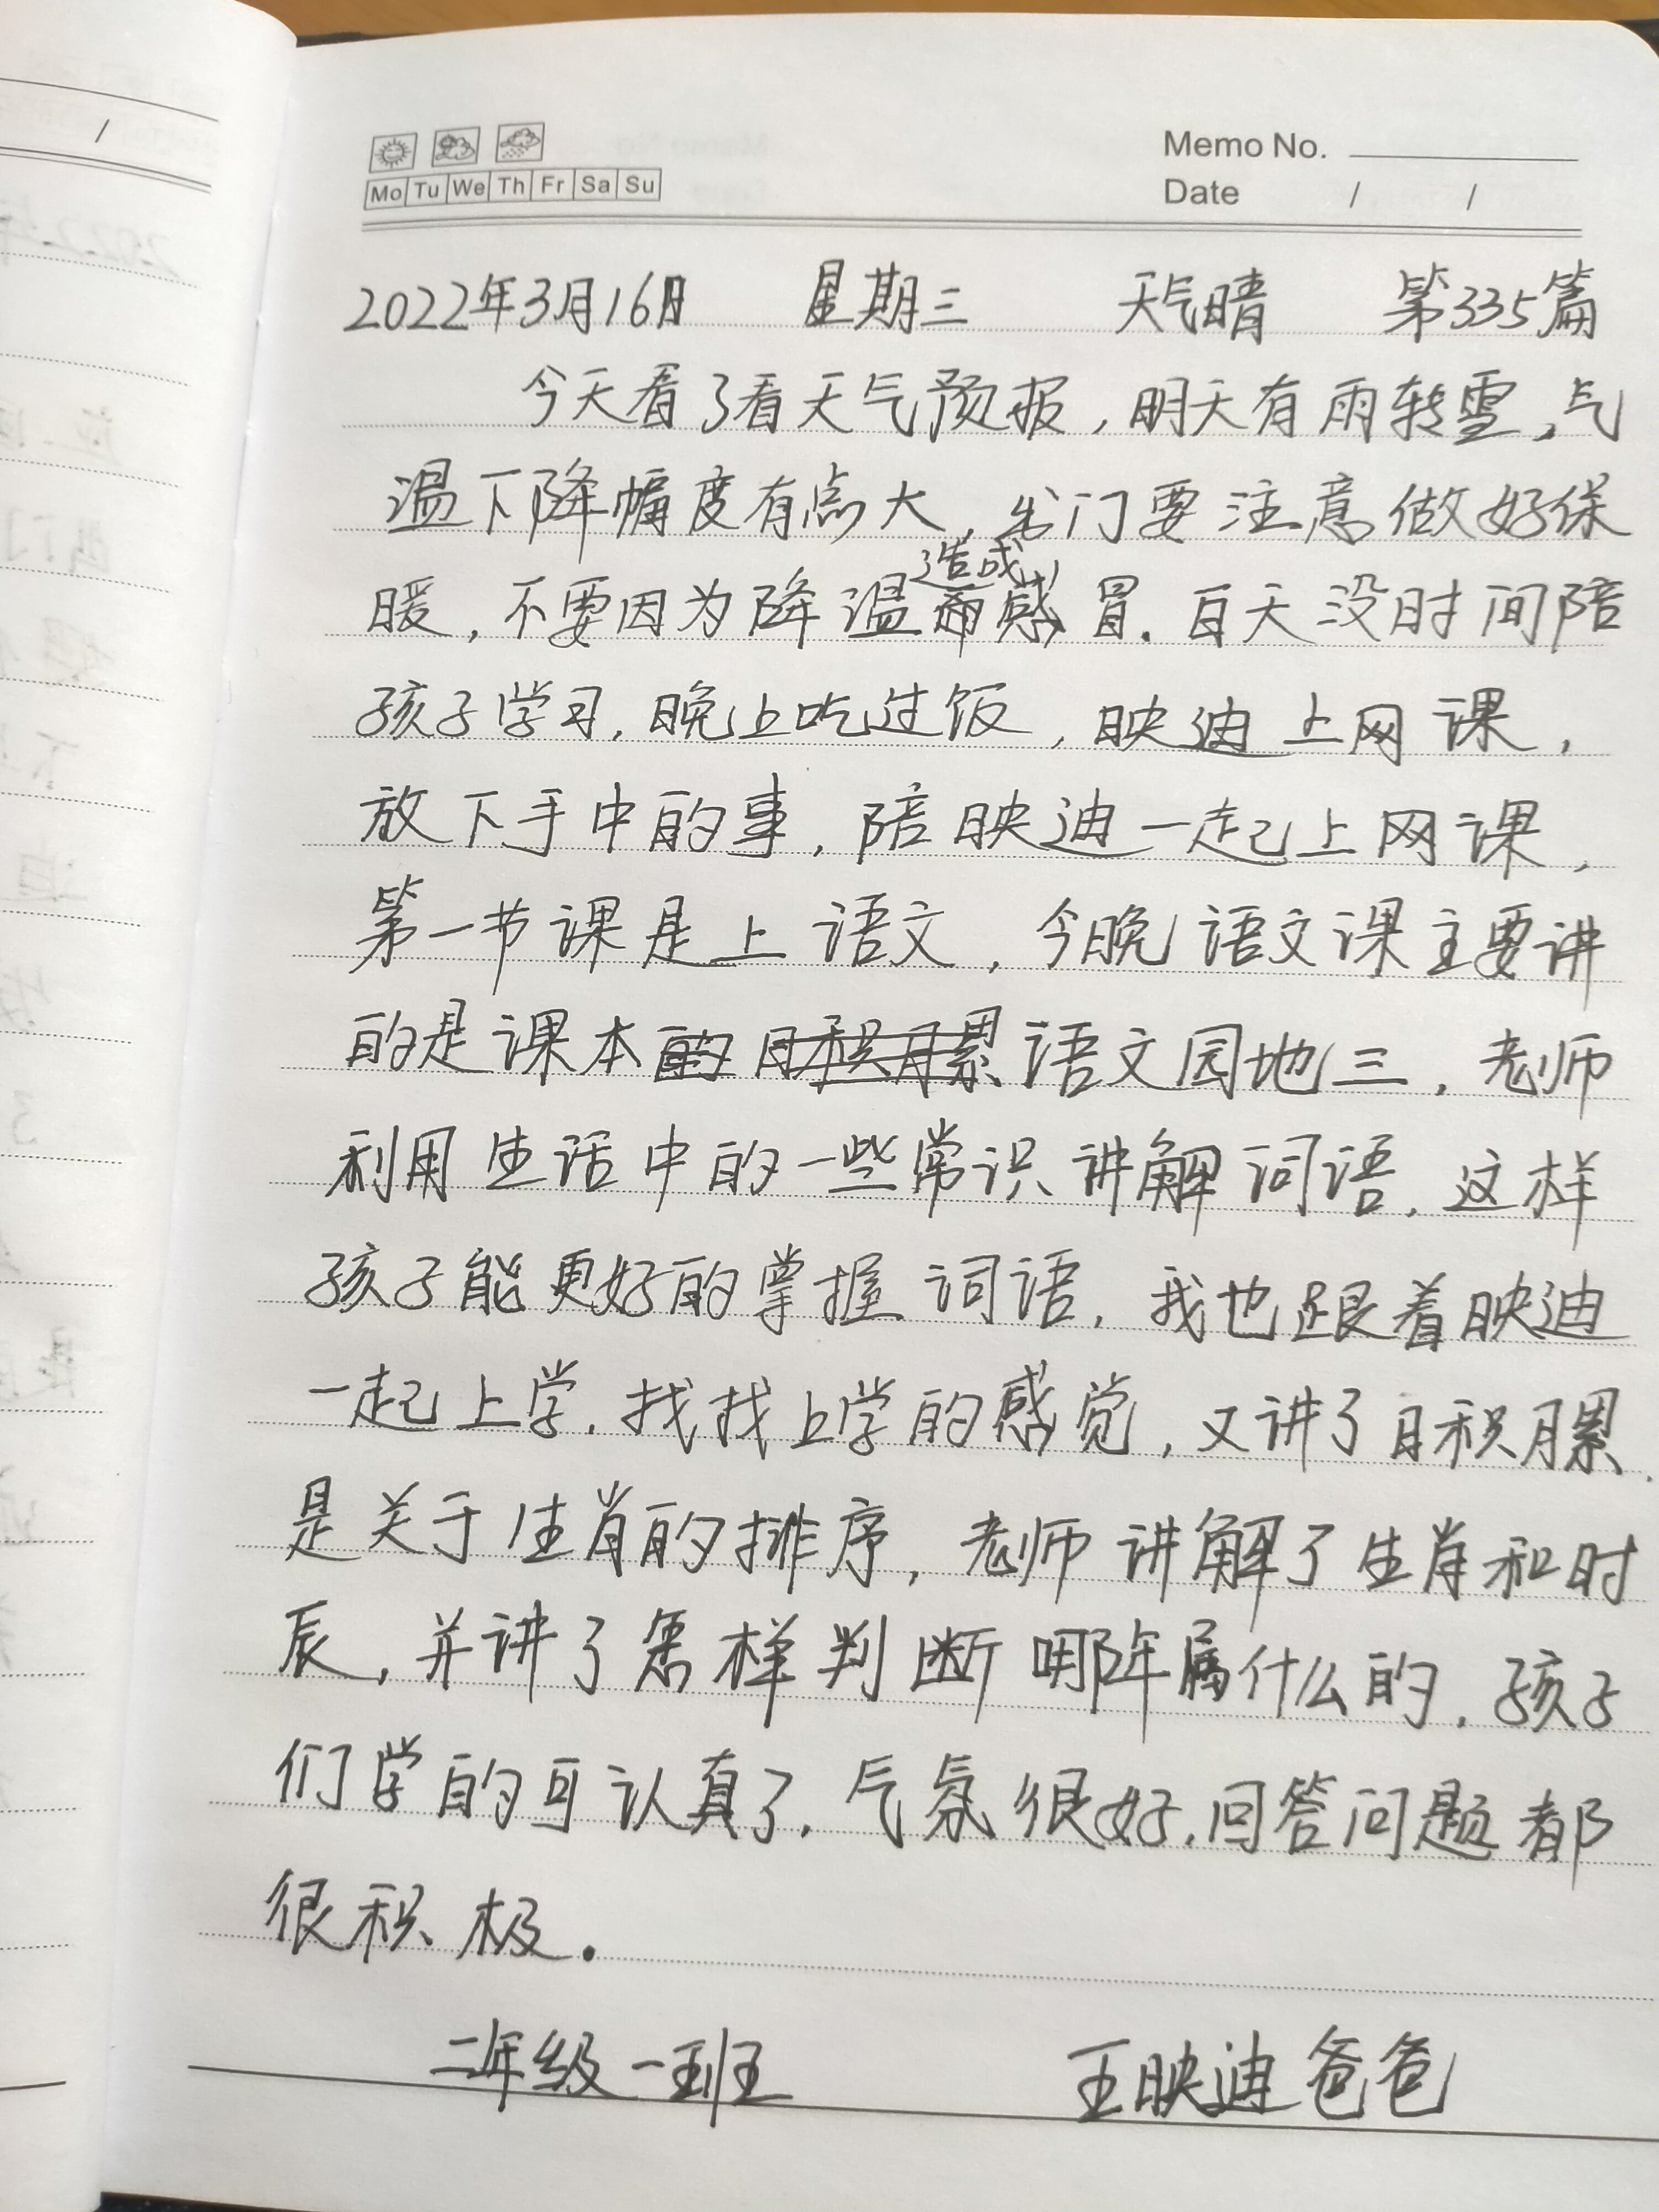 Mo Tu We Th Fr Sa Su
Memo No.
Date / /
2022年3月16日 星期三 天气晴 第335篇
今天看了看天气预报,明天有雨转雪,气
温下降幅度有点大,出门要注意做好保
暖,不要因为降温造成感冒.白天没时间陪
孩子学习,晚上吃过饭,映迪上网课,
放下手中的事,陪映迪一起上网课,
第一节课是上语文,今晚语文课主要讲
的是课本的日积月累语文园地三,老师
利用生活中的一些常识讲解词语,这样
孩子能更好的掌握词语,我也跟着映迪
一起上学,找找上学的感觉,又讲了日积月累.
是关于生肖的排序,老师讲解了生肖和时
辰,并讲了怎样判断哪年属什么的,孩子
们学的可认真了,气氛很好,回答问题都
很积极.
二年级一班 王映迪爸爸